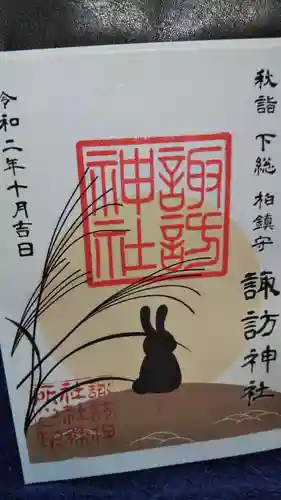 秋詣 下総 柏鎮守
諏訪神社
諏訪
神社
令和二年十月吉日